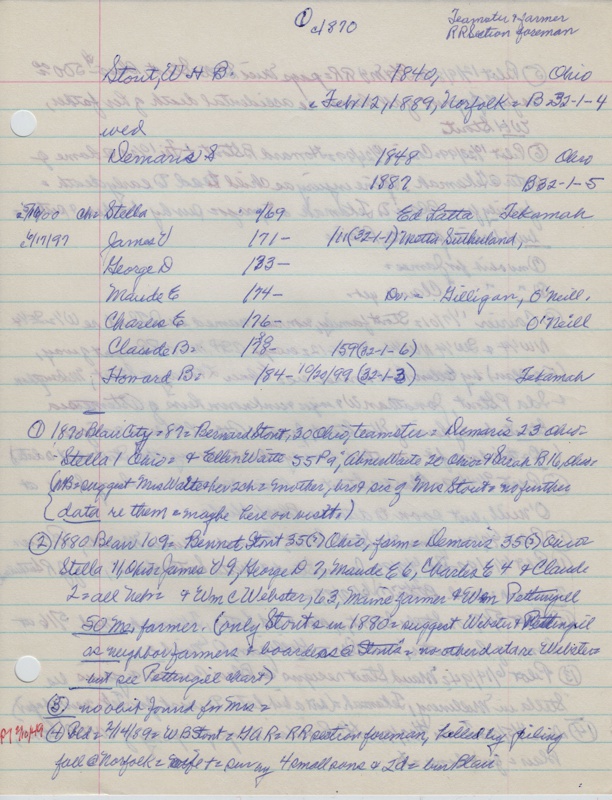 ① c1870 Teamster & farmer
RR section foreman
Stout, W H B. 1840, Ohio
Feb 12, 1889, Norfolk = B 32-1-4
wed
Demaris S 1848 Ohio
1887 B 32-1-5
ch = Stella /69 Ed Latta Tekamah
6/17/97 James V /71- /11 (32-1-1) Sutherland,
George D /73-
Maude E /74- Gilligan, O'Neill.
Charles E /76- O'Neill
Claude B = /78- /59 (32-1-6)
Howard B = /84- 10/20/99 (32-1-3) Tekamah
① 1870 Blair City = 87 = Bernard Stout, 30 Ohio, teamster = Demaris 23 Ohio =
Stella 1 Ohio = & Ellen Waite 55 Pa, Abner Waite 20 Ohio & Sarah B 16, Ohio =
(NB = suggest Mrs Waite & her 2 ch = mother, bro & sis of Mrs Stout = no further
data re them = maybe here on visit =)
② 1880 Blair 109 = Bennet Stout 35(?) Ohio, farm = Demaris 35(?) Ohio =
Stella 11 Ohio = James V 9, George D 7, Maude E 6, Charles E 4 & Claude
2 = all Neb = & Wm C Webster, 63, Maine farmer & Wm Pettingill
50 Me, farmer. (only Stouts in 1880 = suggest Webster & Pettingill
as neighbor farmers & boarders @ Stouts = no other data re Webster =
but see Pettingill chart)
③ no obit found for Mrs =
P.T 2/10/49 ④ Ped = 2/14/89 = W B Stout = GAR = RR section foreman, killed by
fall @ Norfolk = wife + = surv by 4 small sons & 2 d = bur Blair